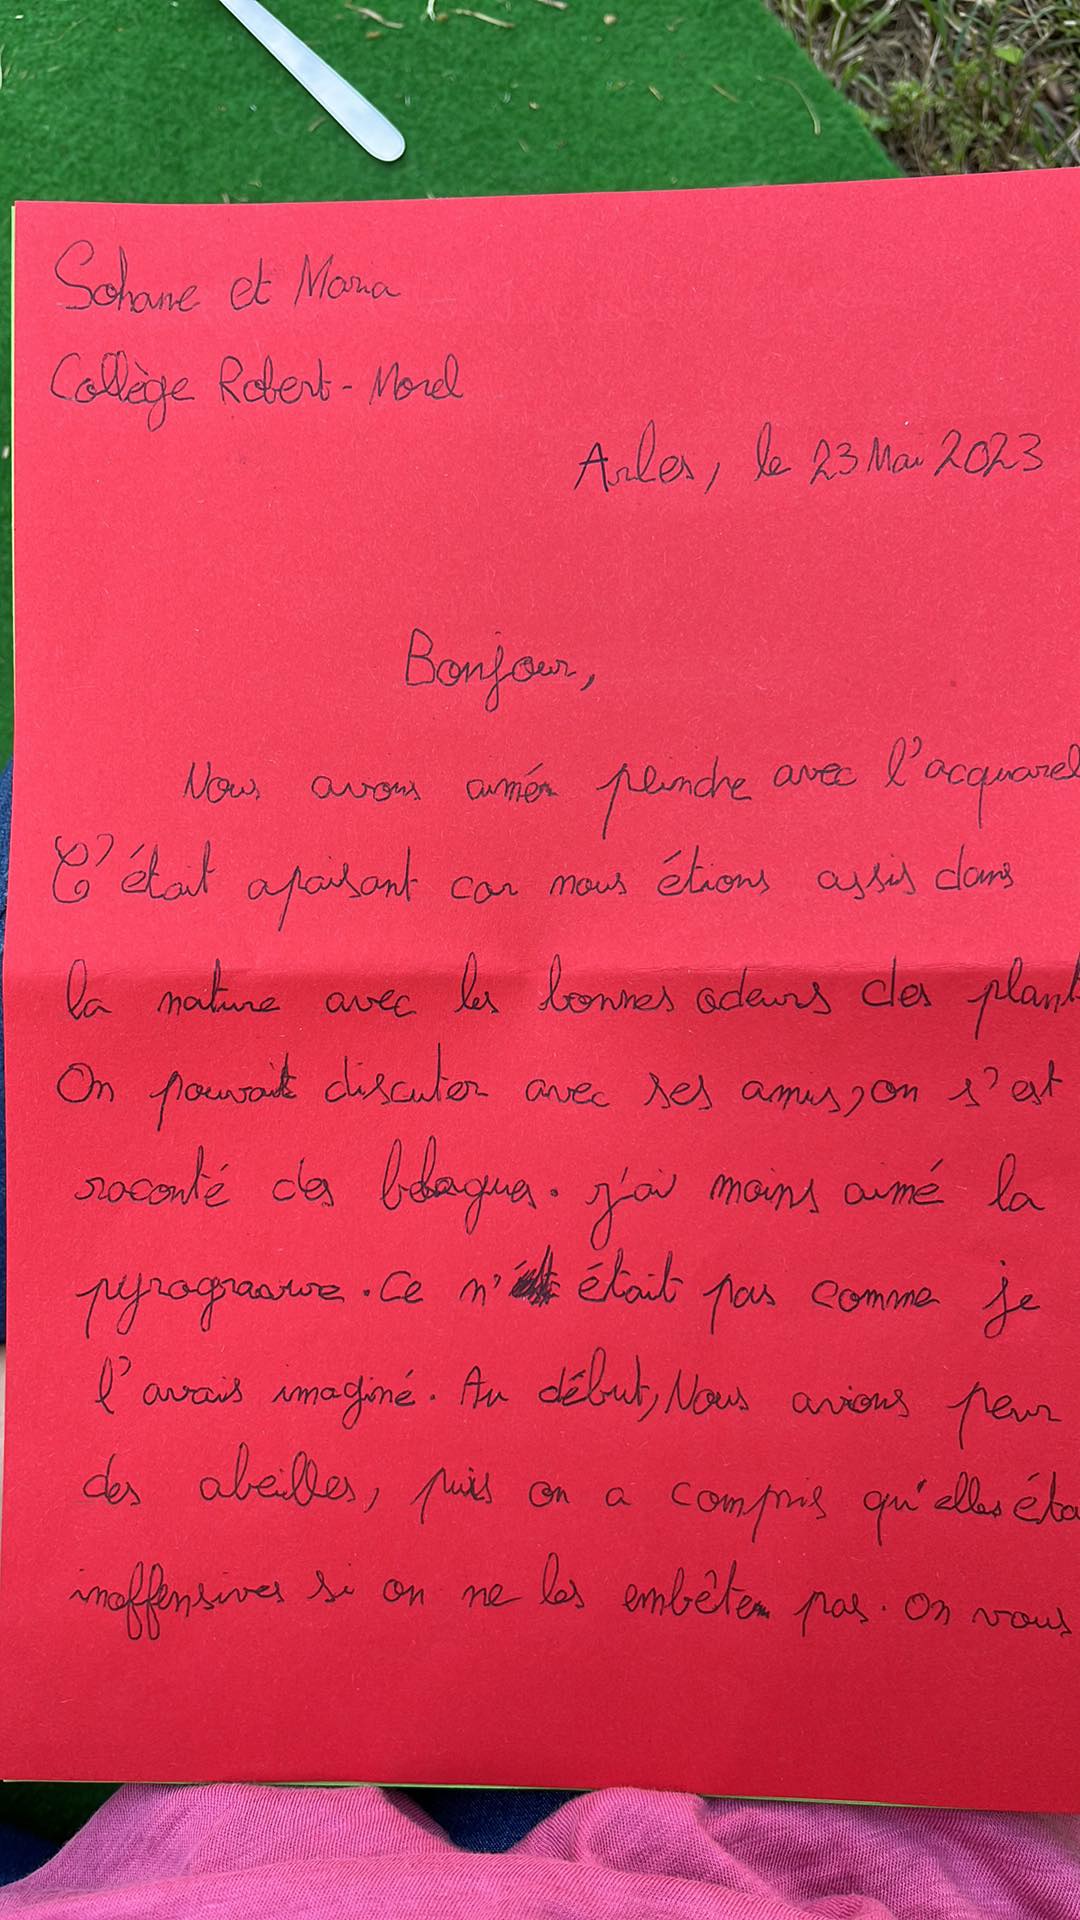 Sohane et Mana
Collège Robert-Morel
Arles, le 23 Mai 2023
Bonjour,
Nous avons aimé peindre avec l'acquarel
C'était apaisant car nous étions assis dans
la nature avec les bonnes odeurs des plant
On pouvait discuter avec ses amis, on s'est
raconté des blagues. j'ai moins aimé la
pyrogravure. Ce n' était pas comme je
l'avais imaginé. Au début, Nous avions peur
des abeilles, puis on a compris qu'elles éta
inoffensives si on ne les embête pas. On vous